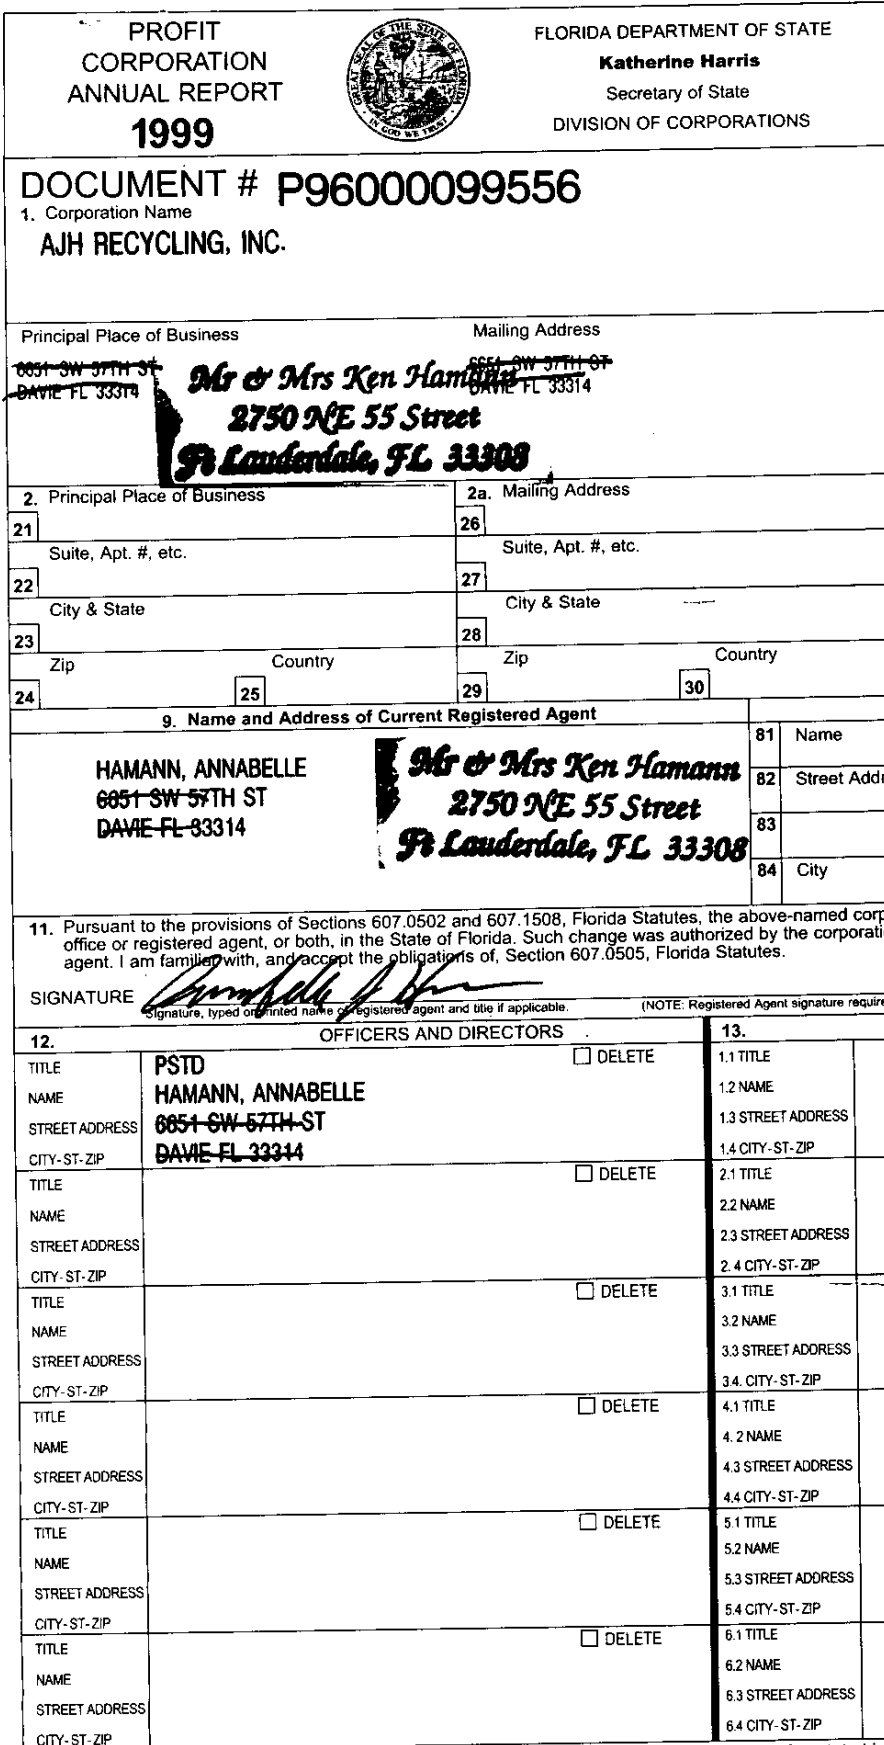 PROFIT
CORPORATION
ANNUAL REPORT
1999
GREAT SEAL OF THE STATE OF FLORIDA
IN GOD WE TRUST
FLORIDA DEPARTMENT OF STATE
Katherine Harris
Secretary of State
DIVISION OF CORPORATIONS
DOCUMENT # P96000099556
1. Corporation Name
AJH RECYCLING, INC.
Principal Place of Business
Mailing Address
6651 SW 57TH ST
DAVIE FL 33314
Mr & Mrs Ken Hamann
2750 NE 55 Street
Ft Lauderdale, FL 33308
SW 57TH ST
DAVIE FL 33314
2. Principal Place of Business
2a. Mailing Address
21
26
Suite, Apt. #, etc.
Suite, Apt. #, etc.
22
27
City & State
City & State
23
28
Zip
Country
Zip
Country
24
25
29
30
9. Name and Address of Current Registered Agent
HAMANN, ANNABELLE
6651 SW 57TH ST
DAVIE FL 33314
Mr & Mrs Ken Hamann
2750 NE 55 Street
Ft Lauderdale, FL 33308
81 Name
82 Street Addr
83
84 City
11. Pursuant to the provisions of Sections 607.0502 and 607.1508, Florida Statutes, the above-named corp
office or registered agent, or both, in the State of Florida. Such change was authorized by the corporati
agent. I am familiar with, and accept the obligations of, Section 607.0505, Florida Statutes.
SIGNATURE Annabelle J Hamann
Signature, typed or printed name of registered agent and title if applicable.
(NOTE: Registered Agent signature require
12. OFFICERS AND DIRECTORS
13.
TITLE PSTD DELETE
NAME HAMANN, ANNABELLE
STREET ADDRESS 6651 SW 57TH ST
CITY-ST-ZIP DAVIE FL 33314
1.1 TITLE
1.2 NAME
1.3 STREET ADDRESS
1.4 CITY-ST-ZIP
TITLE DELETE
NAME
STREET ADDRESS
CITY-ST-ZIP
2.1 TITLE
2.2 NAME
2.3 STREET ADDRESS
2. 4 CITY-ST-ZIP
TITLE DELETE
NAME
STREET ADDRESS
CITY-ST-ZIP
3.1 TITLE
3.2 NAME
3.3 STREET ADDRESS
3.4. CITY-ST-ZIP
TITLE DELETE
NAME
STREET ADDRESS
CITY-ST-ZIP
4.1 TITLE
4. 2 NAME
4.3 STREET ADDRESS
4.4 CITY-ST-ZIP
TITLE DELETE
NAME
STREET ADDRESS
CITY-ST-ZIP
5.1 TITLE
5.2 NAME
5.3 STREET ADDRESS
5.4 CITY-ST-ZIP
TITLE DELETE
NAME
STREET ADDRESS
CITY-ST-ZIP
6.1 TITLE
6.2 NAME
6.3 STREET ADDRESS
6.4 CITY-ST-ZIP